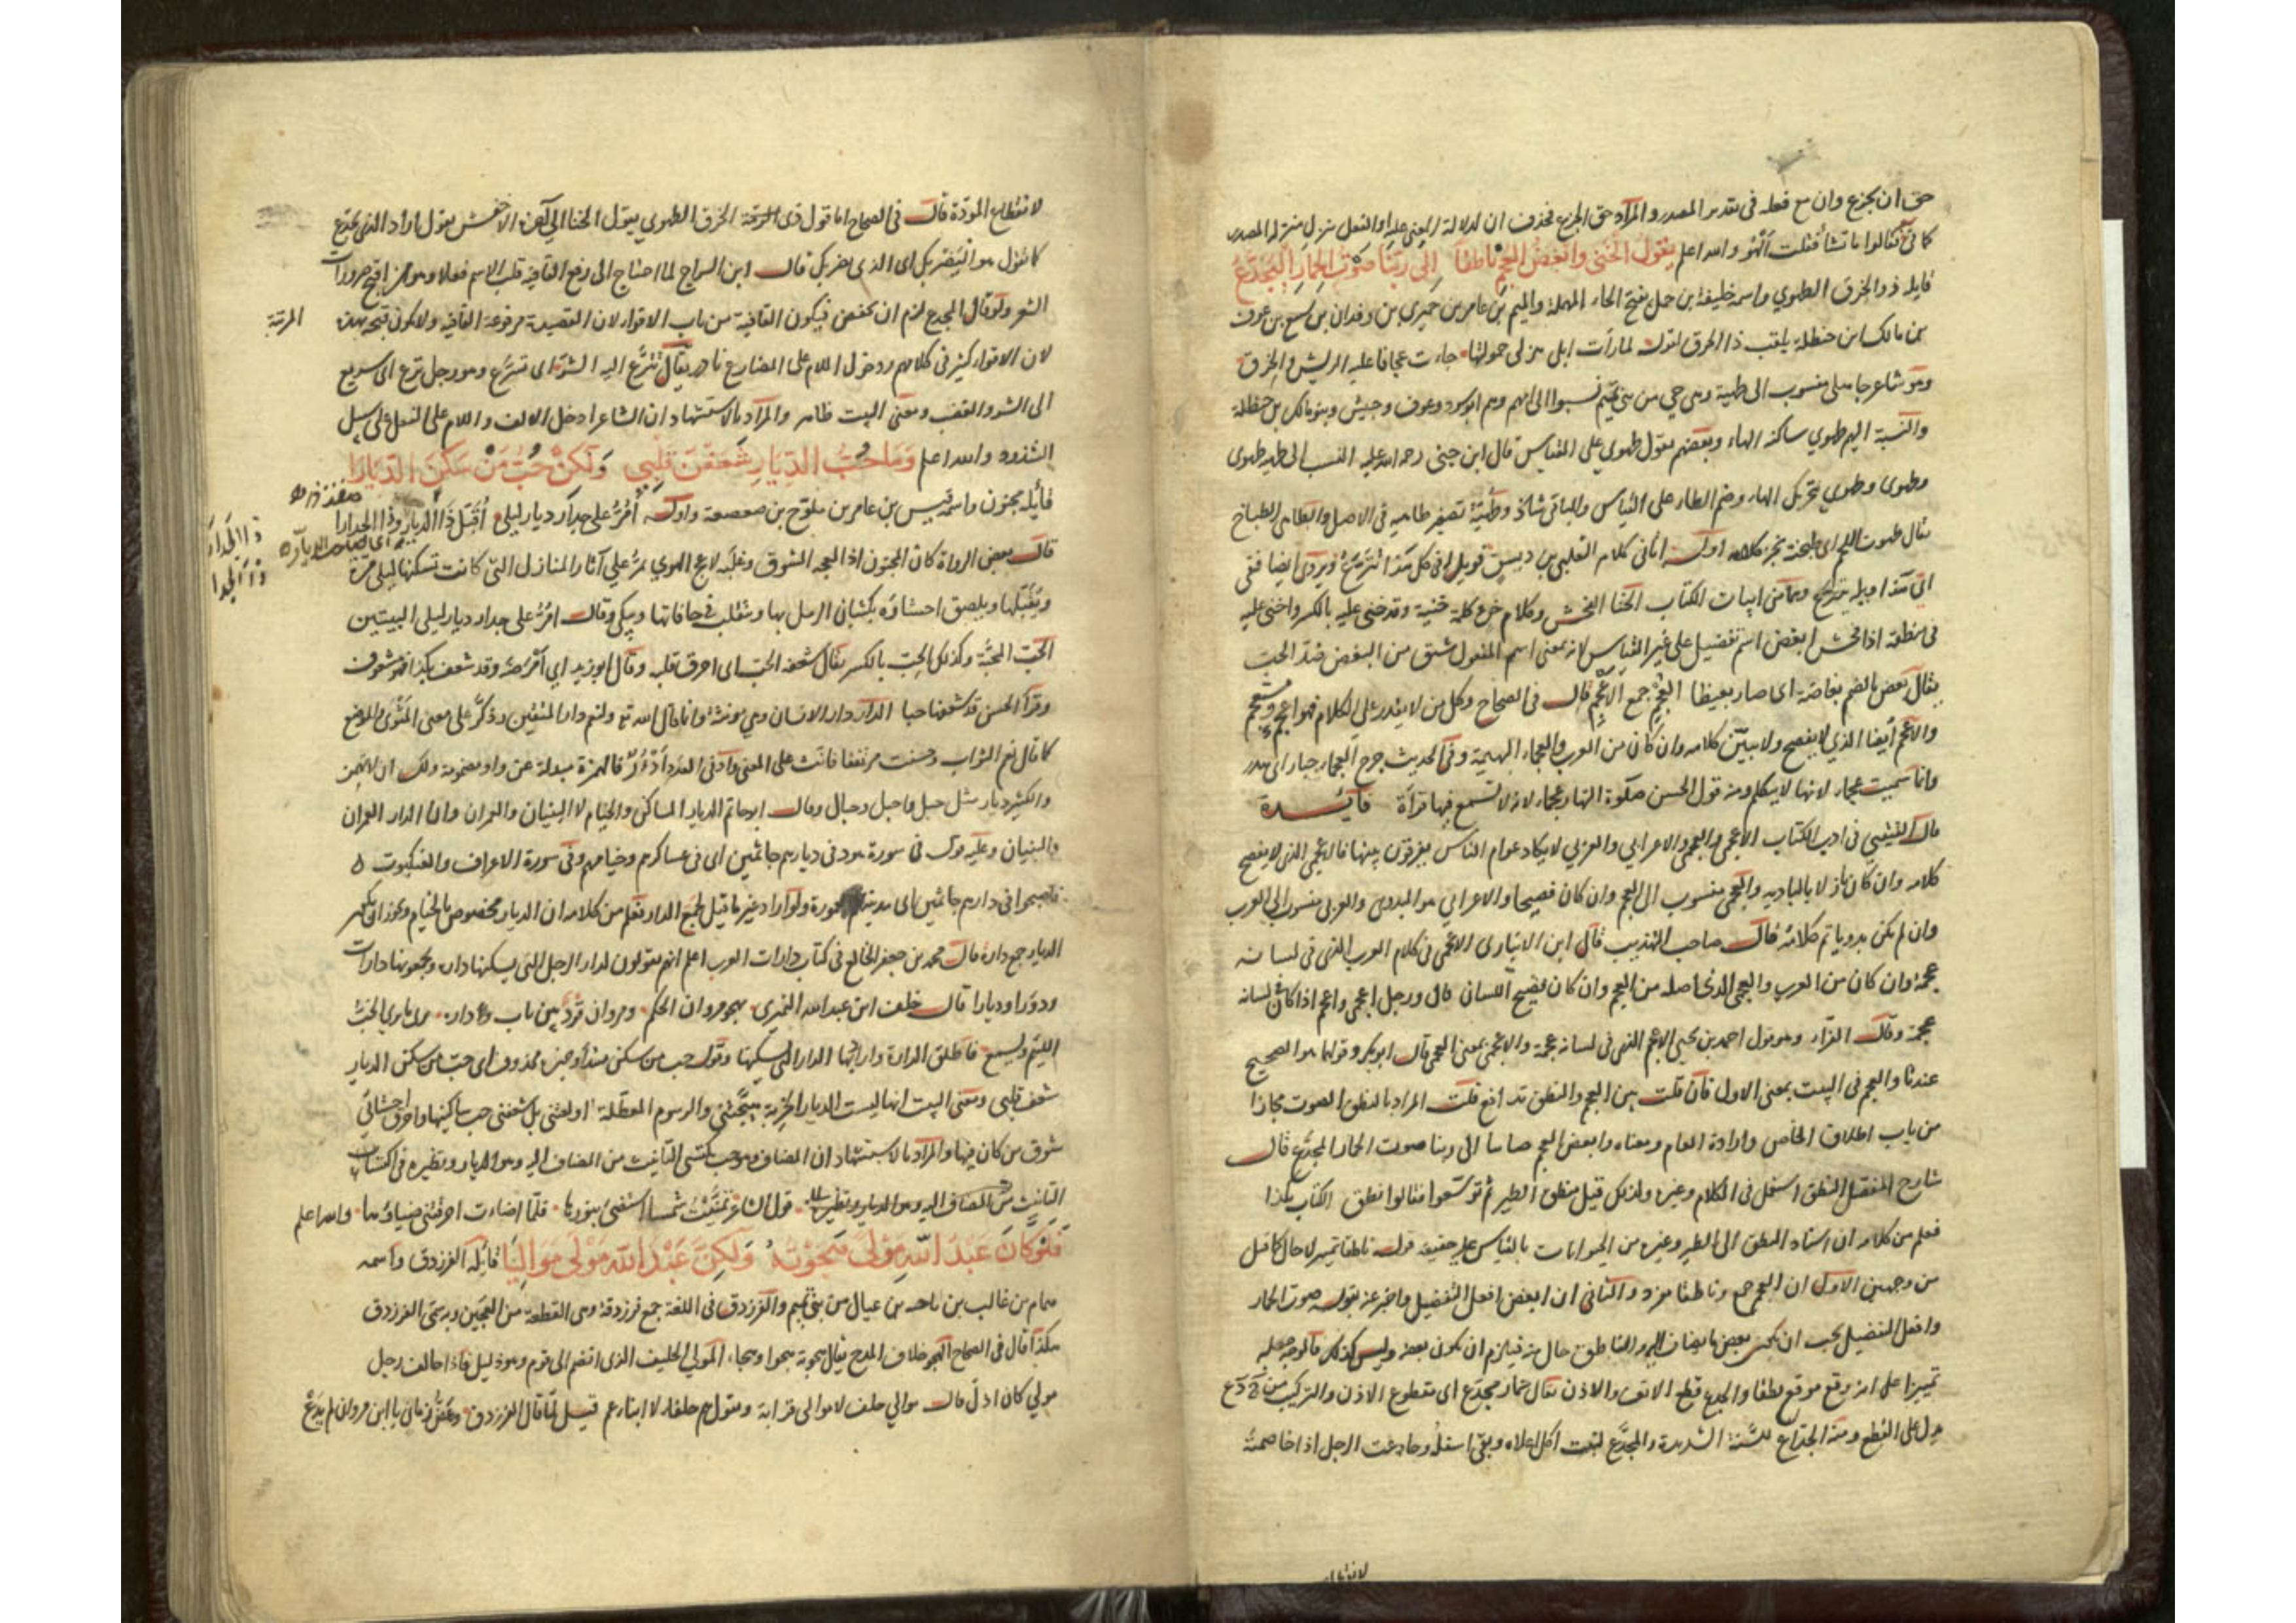 حق ان يجزع وان مع فعله فى تقدير المصدر والمراد حق الجزع فحذف ان لدلالة المعنى عليه او الفعل نزل منزلة المصدر
كما فى فقالوا ما تشا فقلت ألهو والله اعلم يَقُولُ الخَنَى وابْغَضُ العُجْمِ ناطقا إلى رَبِّنا صَوْتُ الحِمارِ الْيُجَدَّعُ
قايله ذو الخرق الطهوي واسمه خليفة بن حمل بفتح الحاء المهملة والميم بن عامر بن حميري بن وقدان بن سبيع بن عوف
بن مالك ابن حنظلة يلقب ذا الخرق لقوله لما رأت ابلى هزلى حمولتها جاءت عجافا عليها الريش والخرق
وهو شاعر جاهلى منسوب الى طهية وهى حي من بنى تميم نسبوا الى امهم وهم ابو سود وعوف وحبيش وبنو مالك بن حنظلة
والنسبة اليهم طهوي ساكنة الهاء وبعضهم يقول طهوي على القياس قال ابن جنى رحمه الله عليه النسب الى طهيه طهوى
وطهوى وطهوي بتحريك الهاء وضم الطاء على القياس والباقى شاذ وطُهَيَّة تصغير طاهيه فى الاصل والطاهى الطباخ
يقال طهوت اللحم اى طبخته اوله أتانى كلام الثعلبى بن ديسق ففى اى هذا ويله يتترع ويروى ايضا ففى
اى هذا ويله يتترع وهما من ابيات الكتاب الخنا الفحش وكلام خن وكلمة خنية وقد خنى عليه بالكسر واخنى عليه
فى منطقه اذا افحش ابغض اسم تفضيل على غير القياس لانه بمعنى اسم المفعول مشتق من البغض ضد الحب
يقال بغض بالضم بغاضة اى صار بغيضا العجم جمع الاعجم قال فى الصحاح وكل من لا يقدر على الكلام فهو اعجم ومستعجم
والاعجم ايضا الذي لا يفصح ولا يبين كلامه وان كان من العرب والعجماء البهيمة وفى الحديث جرح العجماء جبار اى هدر
وانما سميت عجماء لانها لا تتكلم ومنه قول الحسن صلوة النهار عجماء لانه لا تسمع فيها قرأة فايدة
قال القتيبي فى ادب الكتاب الاعجمى والعجمى والاعرابي والعربي لا يكاد عوام الناس يفرقون بينهما فالاعجمى الذى لا يفصح
كلامه وان كان نازلا بالباديه والعجمى منسوب الى العجم وان كان فصيحا والاعرابي هو البدوى والعربى منسوب الى العرب
وان لم يكن بدويا تم كلامه قال صاحب التهذيب قال ابن الانبارى الاعجمى فى كلام العرب الذى فى لسانه
عجمة وان كان من العرب والعجمى الذى اصله من العجم وان كان فصيح اللسان قال ورجل اعجمى واعجم اذا كان فى لسانه
عجمة وقال الفراء وهو قول احمد بن يحيى الاعجم الذى فى لسانه عجمة والاعجمى بمعنى العجمى قال ابوبكر وقولهما هو الصحيح
عندنا والعجم فى البيت بمعنى الاول فان قلت بين العجم والنطق تدافع قلت المراد بالنطق الصوت مجازا
من باب اطلاق الخاص وارادة العام ومعناه وابغض العجم صاتا الى ربنا صوت الحمار المجدع قال
شارح المفصل المنطق استعمل فى الكلام وغيره ولذلك قيل منطق الطير ثم توسعوا فقالوا نطق الكتاب بكذا
فعلم من كلامه ان اسناد النطق الى الطير وغيره من الحيوانات بالقياس عليه حقيقة قوله ناطقا تمييز لا حال كما قيل
من وجهين الاول ان العجم جمع وناطقا مفرد والثانى ان ابغض افعل التفضيل واخبر عنه بقوله صوت الحمار
وافعل التفضيل يجب ان يكون بعض ما يضاف اليه والناطق حال منه فيلزم ان يكون بعضه وليس كذلك فالوجه جعله
تمييزا على انه وقع موقع نطقا والجدع قطع الانف والاذن يقال حمار مجدع اى مقطوع الاذن والتركيب من ج د ع
يدل على القطع ومنه الجداع للسنة الشديدة والمجدع لنبت اكل اعلاه وبقى اسفله وجادعت الرجل اذا خاصمته
لانقطاع
لانقطاع المودة قال فى الصحاح اما قول ذى الخرق الطهوي يقول الخنا الى آخره الاخفش يقول اراد الذى يجدع
كما تقول هو اليضربك اى الذى يضربك قال ابن السراج لما احتاج الى رفع القافية قلب الاسم فعلا وهو من اقبح ضرورات
الشعر ولو قال المجدع لزم ان يخفض فيكون القافية من باب الاقواء لان القصيدة مرفوعة القافية ولا يكون قبحه بهذه المرتبة
لان الاقواء كثير فى كلامهم ودخول اللام على المضارع نادر يقال تترع اليه الشر اى تسرع وهو رجل ترع اى سريع
الى الشر والغضب ومعنى البيت ظاهر والمراد بالاستشهاد ان الشاعر ادخل الالف واللام على الفعل على سبيل
الشذوذ والله اعلم وَمَا حُبُّ الدِّيَارِ شَغَفْنَ قَلْبِي وَلكِنْ حُبُّ مَنْ سَكَنَ الدِّيَارا
قائله مجنون واسمه قيس بن عامر بن ملوح بن صعصعة واوله أمُرُّ على جدار ديار ليلى أُقَبِّلُ ذا الديار وذا الجدارا
ذا الجدار
وذا الجدارا
قال بعض الرواة كان المجنون اذا اهتاجه الشوق وغلبه لاعج الهوي يمر على آثار المنازل التى كانت تسكنها ليلى مرة
ويُقَبِّلها ويلصق احشاءه بكثبان الرمل بها ويتقلب فى حافاتها ويبكى وقال امُرُّ على جدار ديار ليلى البيتين
الحُبّ المحبَّة وكذلك الحِبّ بالكسر يقال شعفه الحب اى احرق قلبه وقال ابو زيد اي امرضه وقد شعف بكذا فهو مشعوف
وقرأ الحسن قد شعفها حبا الدار دار الانسان وهى مونثة وانما قال الله تع ولنعم دار المتقين فذكّر على معنى المثوى والموضع
كما قال نعم الثواب وحسنت مرتفقا فانث على المعنى وادنى العدد أدْؤُرٌ فالهمزة مبدلة عن واو مضمومة ولك ان لا تهمز
والكثير ديار مثل جبل واجبل وجبال وقال ابو حاتم الديار المساكن والخيام لا البنيان والعمران وان الدار العمران
والبنيان وعليه قوله فى سورة هود فى ديارهم جاثمين اى فى عساكرهم وخيامهم وفى سورة الاعراف والعنكبوت
فاصبحوا فى دارهم جاثمين اى مدينتهم المعمورة ولو اراد غير ما قيل لجمع الدار فعلم من كلامه ان الديار مخصوص بالخيام ويجوز ان يكون
الديار جمع دارة قال محمد بن جعفر الخالع فى كتاب دارات العرب اعلم انهم يقولون لدار الرجل التى يسكنها دارة ويجمعونها دارات
ودورا وديارا قال خلف ابن عبد الله النميرى يهجو مروان الحكم ومروان قرد بين باب ودارة
اللئيم ويسمع فاطلق الدارة واراد بها الدار التى يسكنها وقوله حب من سكن مبتدأ وخبره محذوف اى حب من سكن الديار
شعف قلبى ومعنى البيت انها ليست الديار الخربة هيّجتنى والرسوم المعطلة اولعتنى بل شعفنى حب ساكنيها واحرق احشائي
شوق من كان فيها والمراد بالاستشهاد ان المضاف وهو حب يكتسى التأنيث من المضاف اليه وهو الديار ونظيره فى اكتساب
التأنيث من المضاف اليه وهو الديار ونظيره قول الشاعر تمنّيت شمسا استضئ بنورها فلمّا اضاءت احرقتنى ضياؤها والله اعلم
فَلَوْ كَانَ عَبْدُ اللهِ مَوْلَى هَجَوْتُهُ وَلكِنَّ عَبْدَ الله مَوْلَى مَوَالِيَا قائله الفرزدق واسمه
همام بن غالب بن ناجيه بن عيال من بنى تميم والفرزدق فى اللغة جمع فرزدقة وهى القطعة من العجين وبه سمى الفرزدق
هكذا قال فى الصحاح الهجو خلاف المدح يقال هجوته هجوا وهجاء المولى الحليف الذى انضم الى قوم وهو ذليل فاذا حالف رجل
مولى كان اذل قال موالى حلف لا موالى قرابة ويقول هم حلفاء لا ابناء عم قيل لما قال الفرزدق وعضّ زمان يا ابن مروان لم يدع